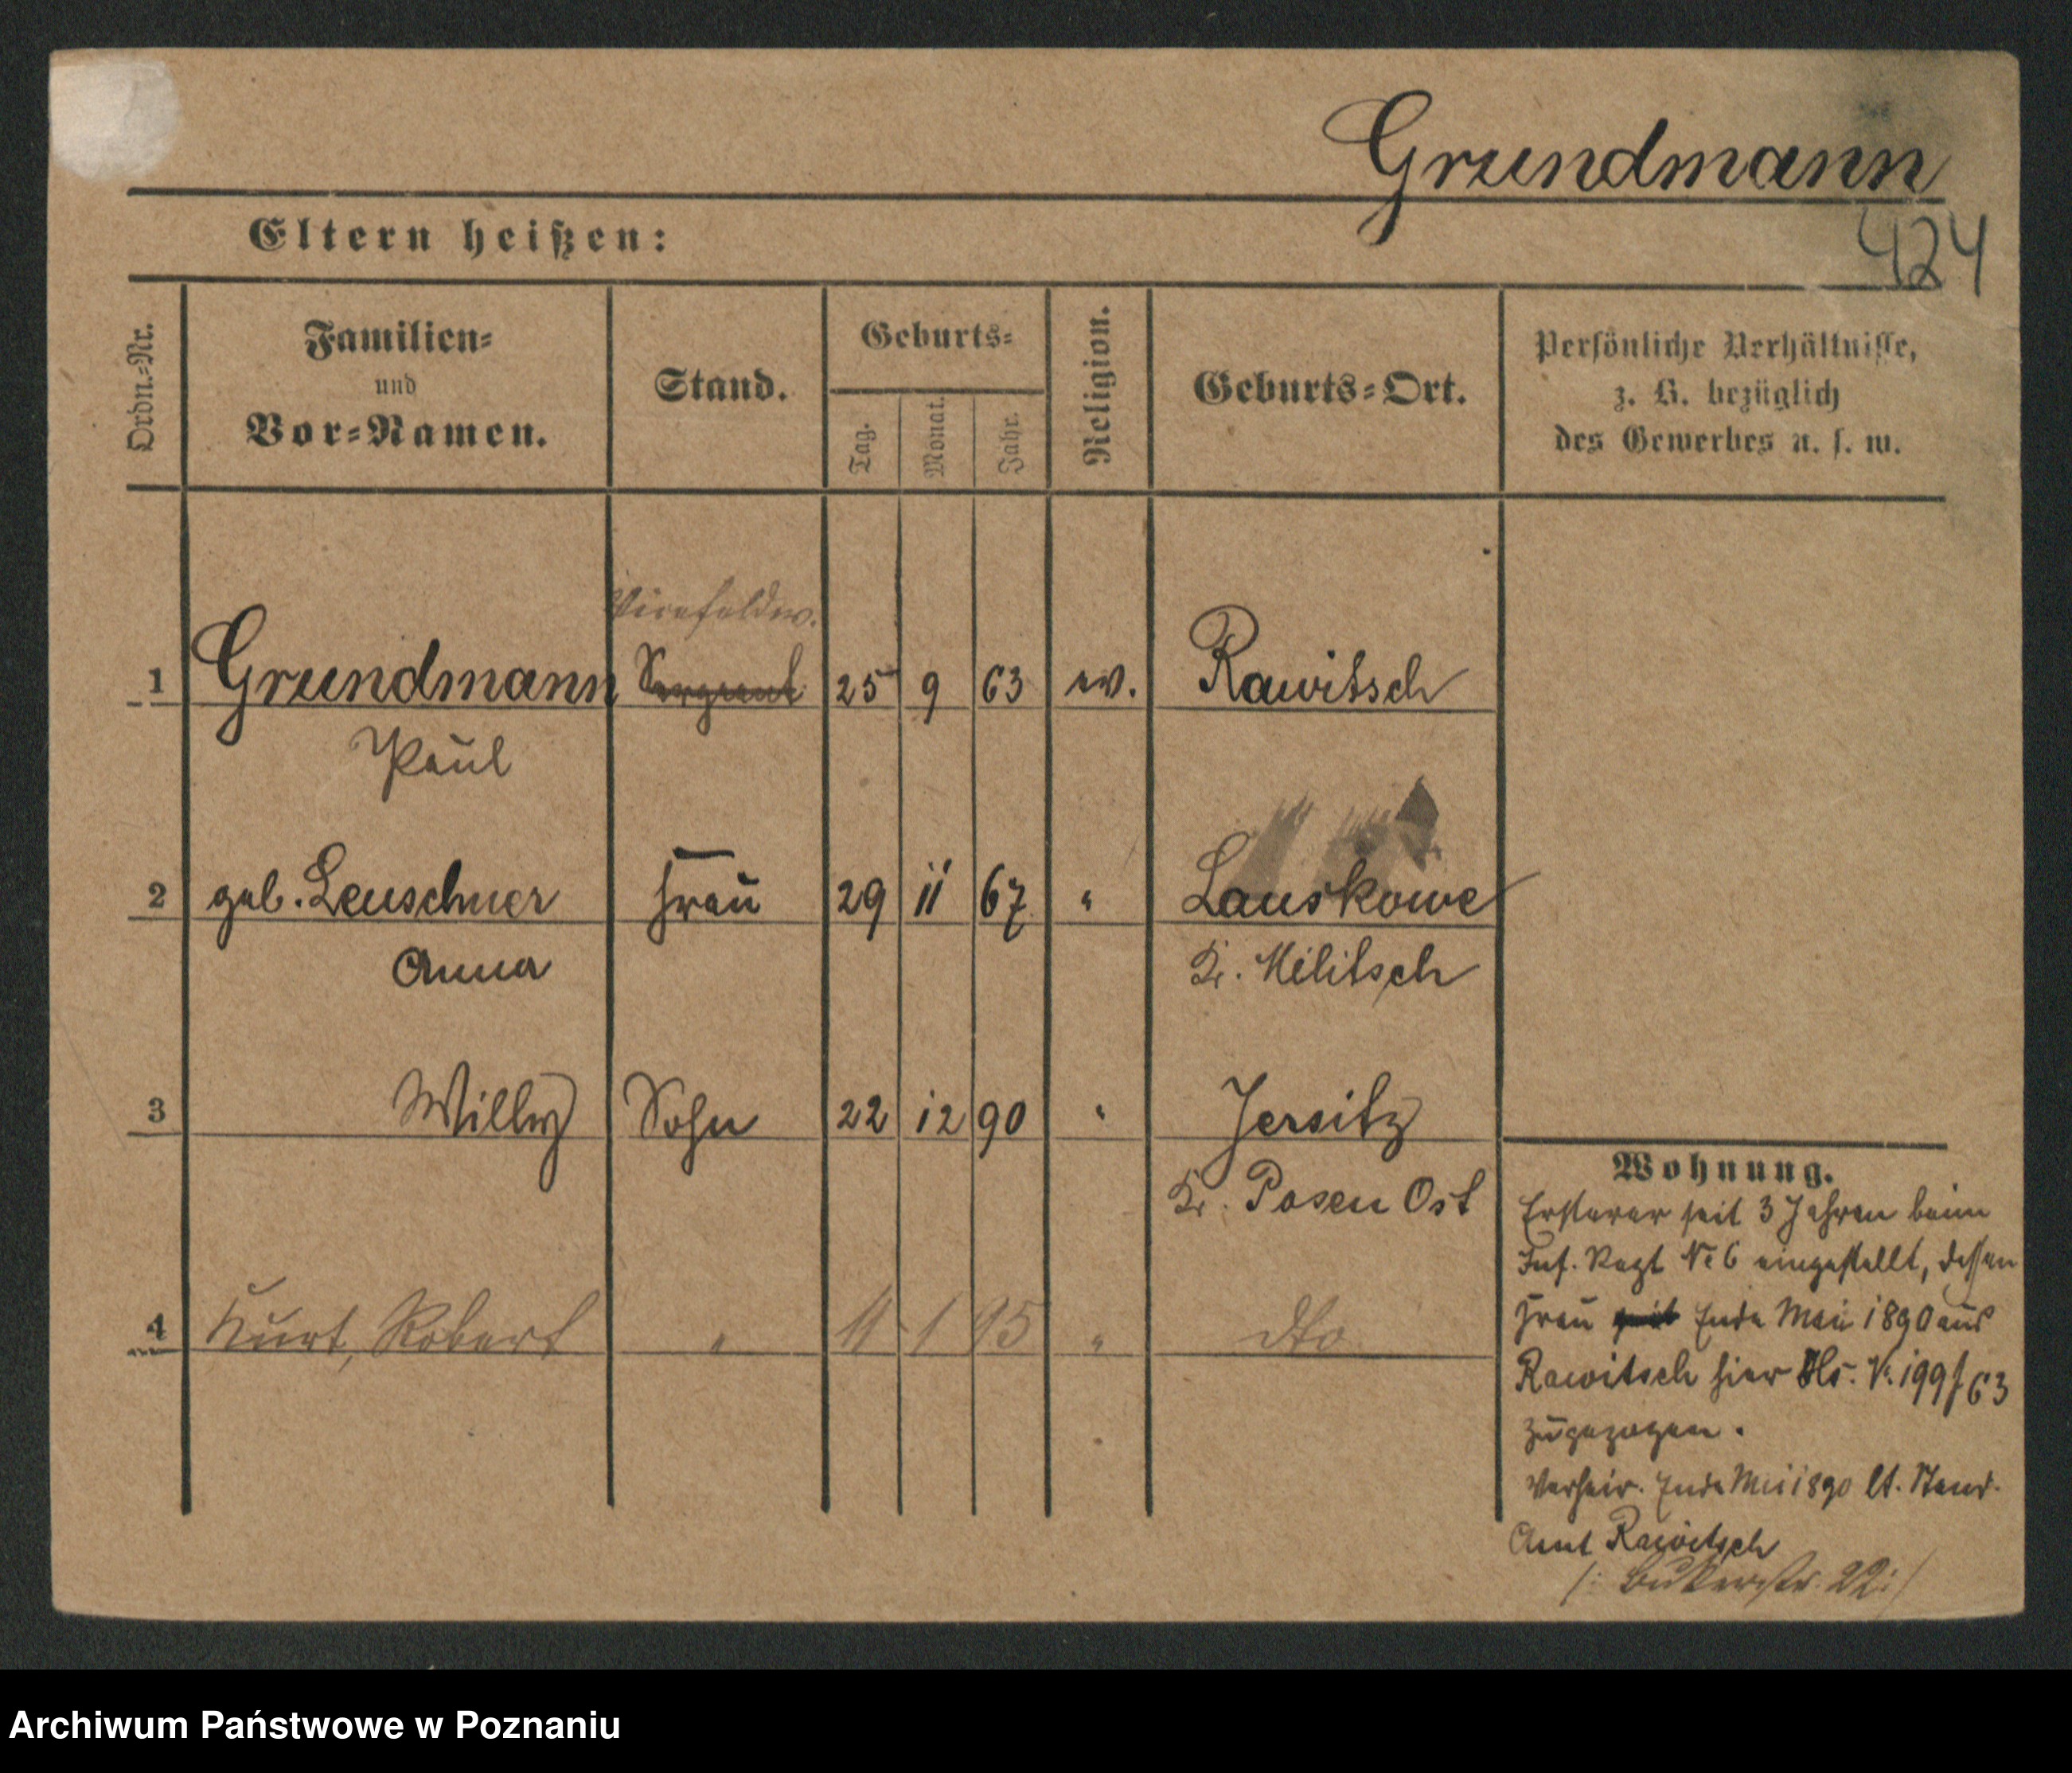 Grundmann
424
Eltern heißen:
Ordn.-Nr.
Familien-
und
Vor-Namen.
Stand.
Geburts-
Tag.
Monat.
Jahr.
Religion.
Geburts-Ort.
Persönliche Verhältnisse,
z. B. bezüglich
des Gewerbes u. s. w.
Vicefeldw.
1 Grundmann Sergeant 25 9 63 ev. Rawitsch
Paul
2 geb. Leuschner Frau 29 11 67 " Lauskowe
Anna Kr. Militsch
3 Willy Sohn 22 12 90 " Jersitz
Kr. Posen Ost
4 Kurt, Robert " 11 1 95 " dto
Wohnung.
Ersterer seit 3 Jahren beim
Inf. Regt No 6 eingestellt, dessen
Frau seit Ende Mai 1890 aus
Rawitsch hier No. 199/63
zugezogen.
Verheir. Ende Mai 1890 lt. Stand.
Amt Rawitsch
/: Bukerstr. 22 :/
Archiwum Państwowe w Poznaniu